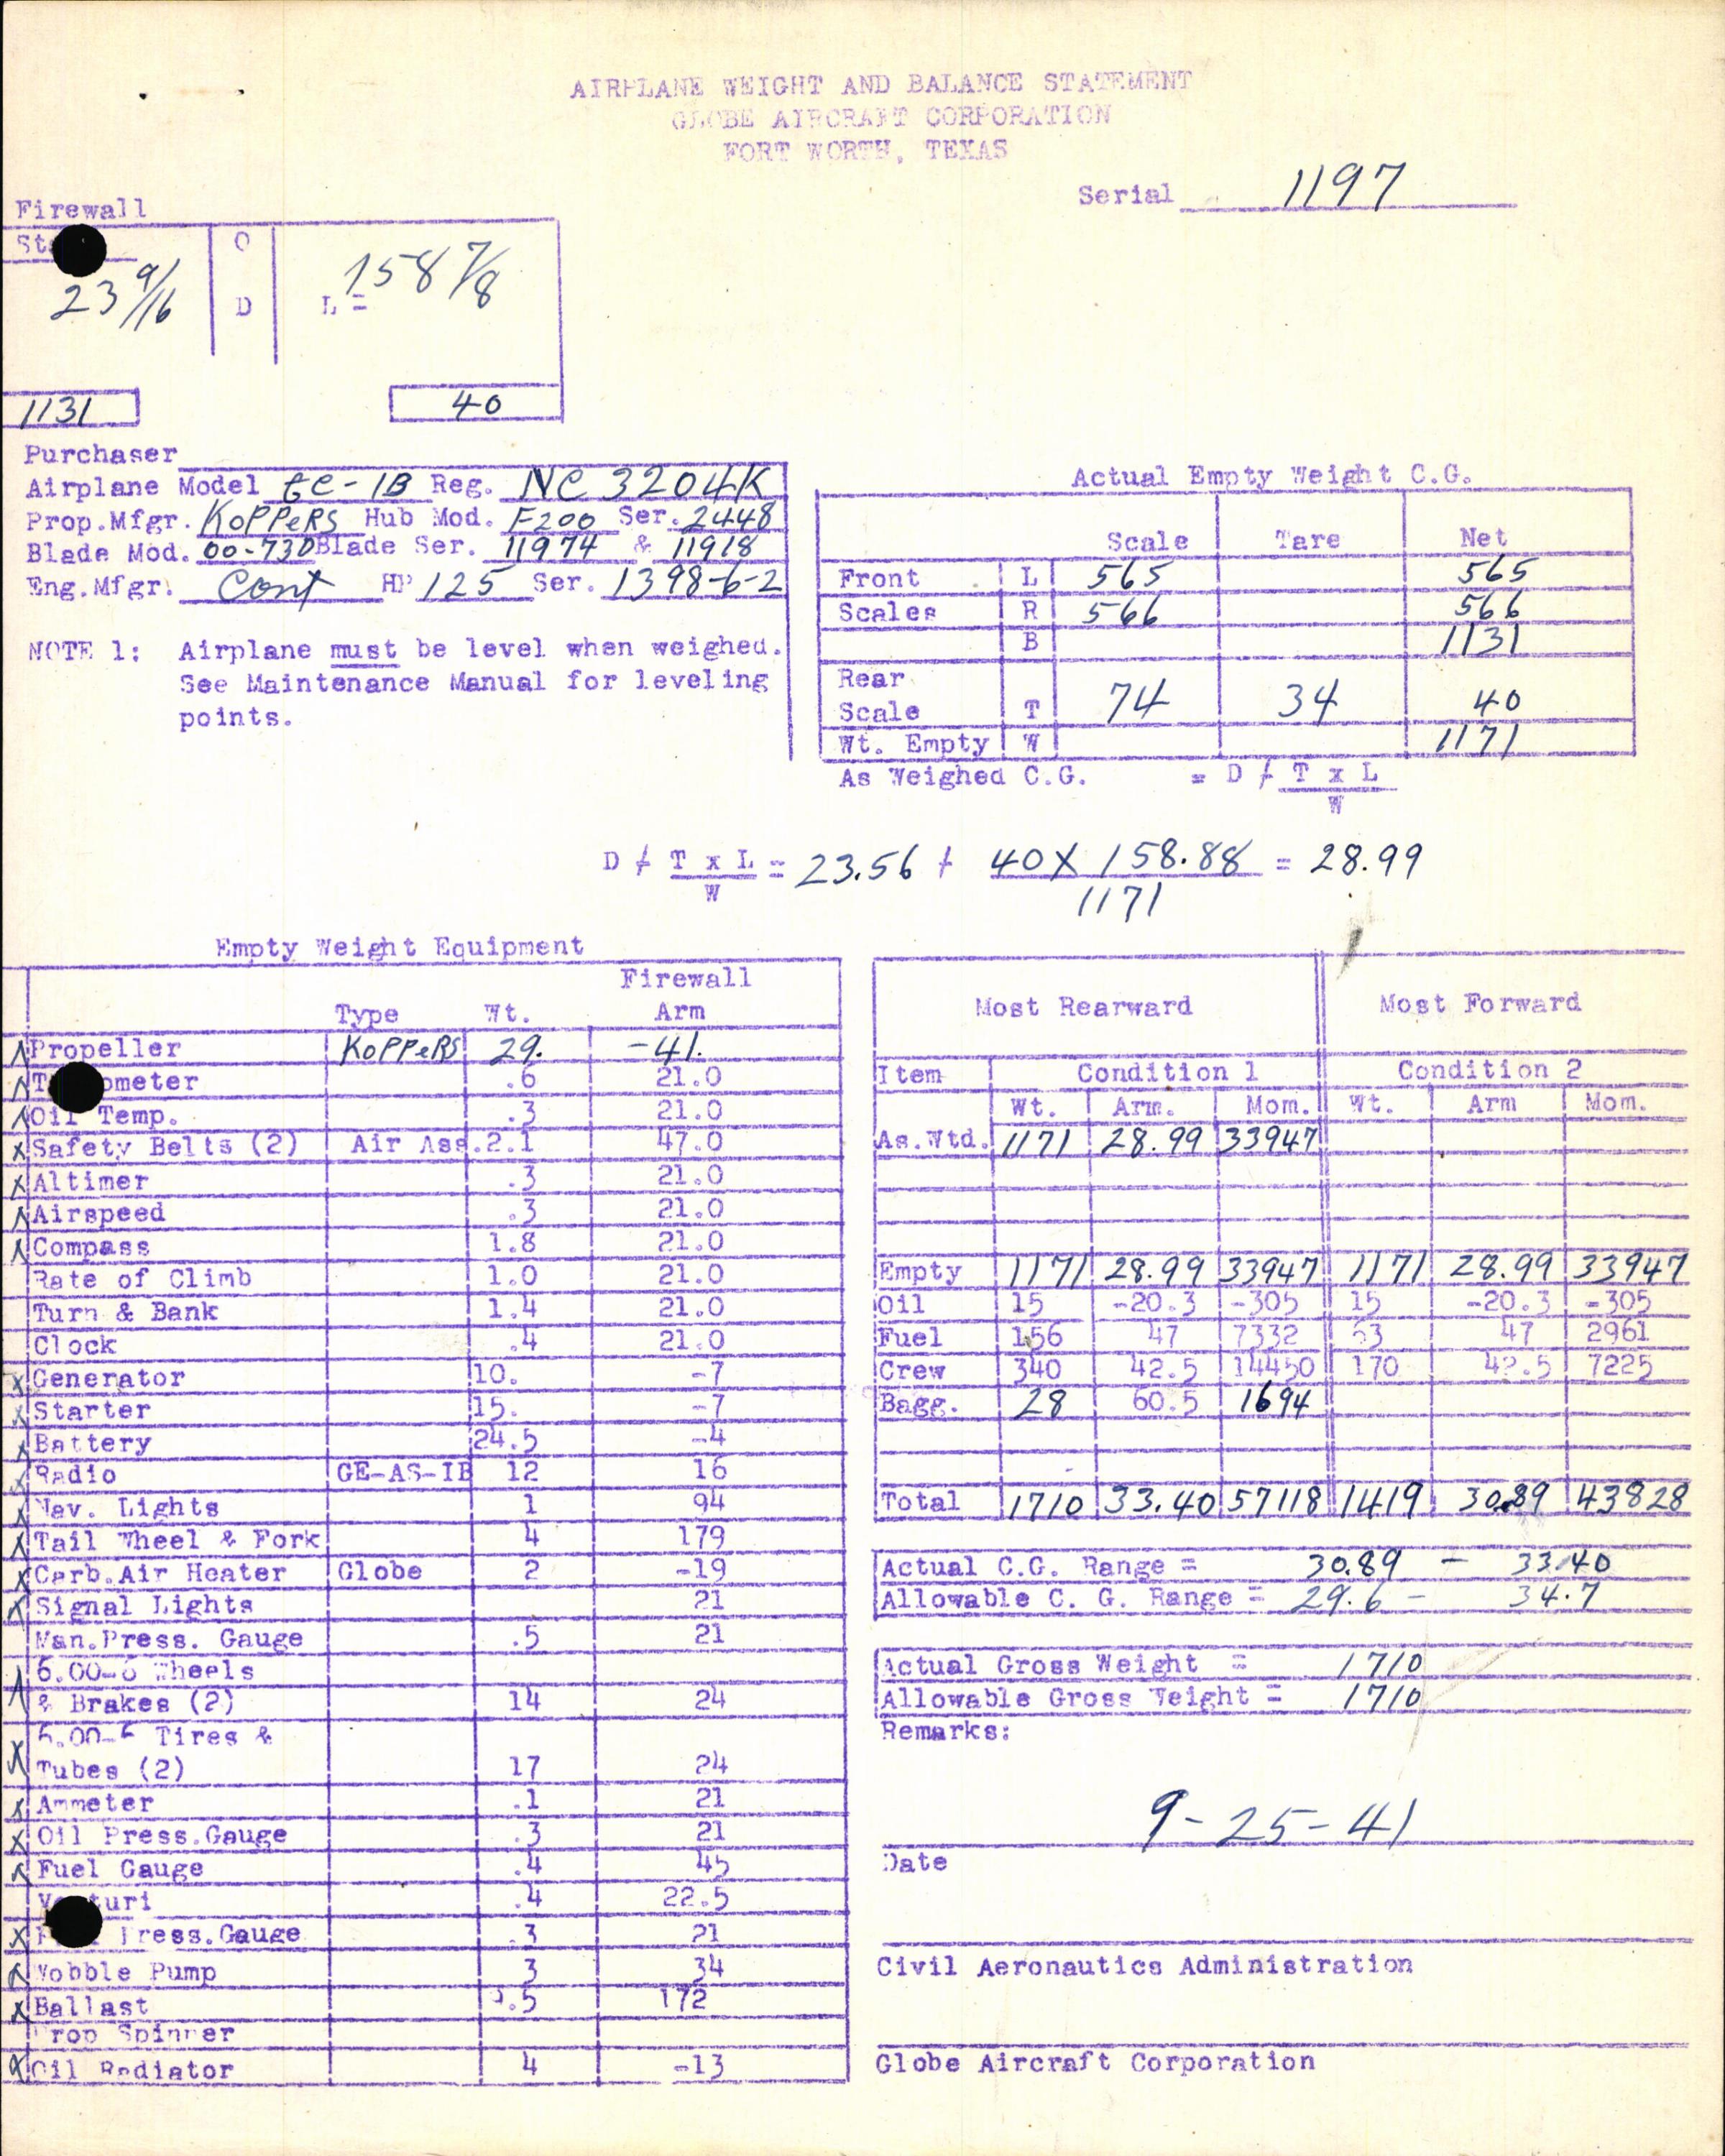 AIRPLANE WEIGHT AND BALANCE STATEMENT
GLOBE AIRCRAFT CORPORATION
FORT WORTH, TEXAS
Serial 1197
Firewall
O
23 9/16 D L = 158 7/8
1131 40
Purchaser
Airplane Model GC-1B Reg. NC 3204K
Prop.Mfgr. KOPPERS Hub Mod. F200 Ser. 2448
Blade Mod. 00-73D Blade Ser. 11974 & 11918
Eng.Mfgr. Cont HP 125 Ser. 1398-6-2
NOTE 1: Airplane must be level when weighed.
See Maintenance Manual for leveling
points.
Actual Empty Weight C.G.
Scale Tare Net
Front L 565 565
Scales R 566 566
B 1131
Rear
Scale T 74 34 40
Wt. Empty W 1171
As Weighed C.G. = D + T x L
W
D + T x L = 23.56 + 40 X 158.88 = 28.99
W 1171
Empty Weight Equipment
Firewall
Type Wt. Arm
X Propeller KOPPERS 29. -41.
X .6 21.0
X Oil Temp. .3 21.0
X Safety Belts (2) Air Ass. 2.1 47.0
X Altimer .3 21.0
X Airspeed .3 21.0
X Compass 1.8 21.0
Rate of Climb 1.0 21.0
Turn & Bank 1.4 21.0
Clock .4 21.0
X Generator 10. -7
X Starter 15. -7
X Battery 24.5 -4
X Radio GE-AS-1B 12 16
X Nav. Lights 1 94
X Tail Wheel & Fork 4 179
X Carb.Air Heater Globe 2 -19
X Signal Lights 21
Man.Press. Gauge .5 21
X 6.00-6 Wheels
& Brakes (2) 14 24
X 6.00-6 Tires &
Tubes (2) 17 24
X Ammeter .1 21
X Oil Press.Gauge .3 21
X Fuel Gauge .4 45
.4 22.5
X Press.Gauge .3 21
X Wobble Pump 3 34
X Ballast 172
Prop Spinner
X Oil Radiator 4 -13
Most Rearward Most Forward
Item Condition 1 Condition 2
Wt. Arm. Mom. Wt. Arm Mom.
As.Wtd. 1171 28.99 33947
Empty 1171 28.99 33947 1171 28.99 33947
Oil 15 -20.3 -305 15 -20.3 -305
Fuel 156 47 7332 63 47 2961
Crew 340 42.5 14450 170 42.5 7225
Bagg. 28 60.5 1694
Total 1710 33.40 57118 1419 30.89 43828
Actual C.G. Range = 30.89 - 33.40
Allowable C. G. Range = 29.6 - 34.7
Actual Gross Weight = 1710
Allowable Gross Weight = 1710
Remarks:
9-25-41
Date
Civil Aeronautics Administration
Globe Aircraft Corporation